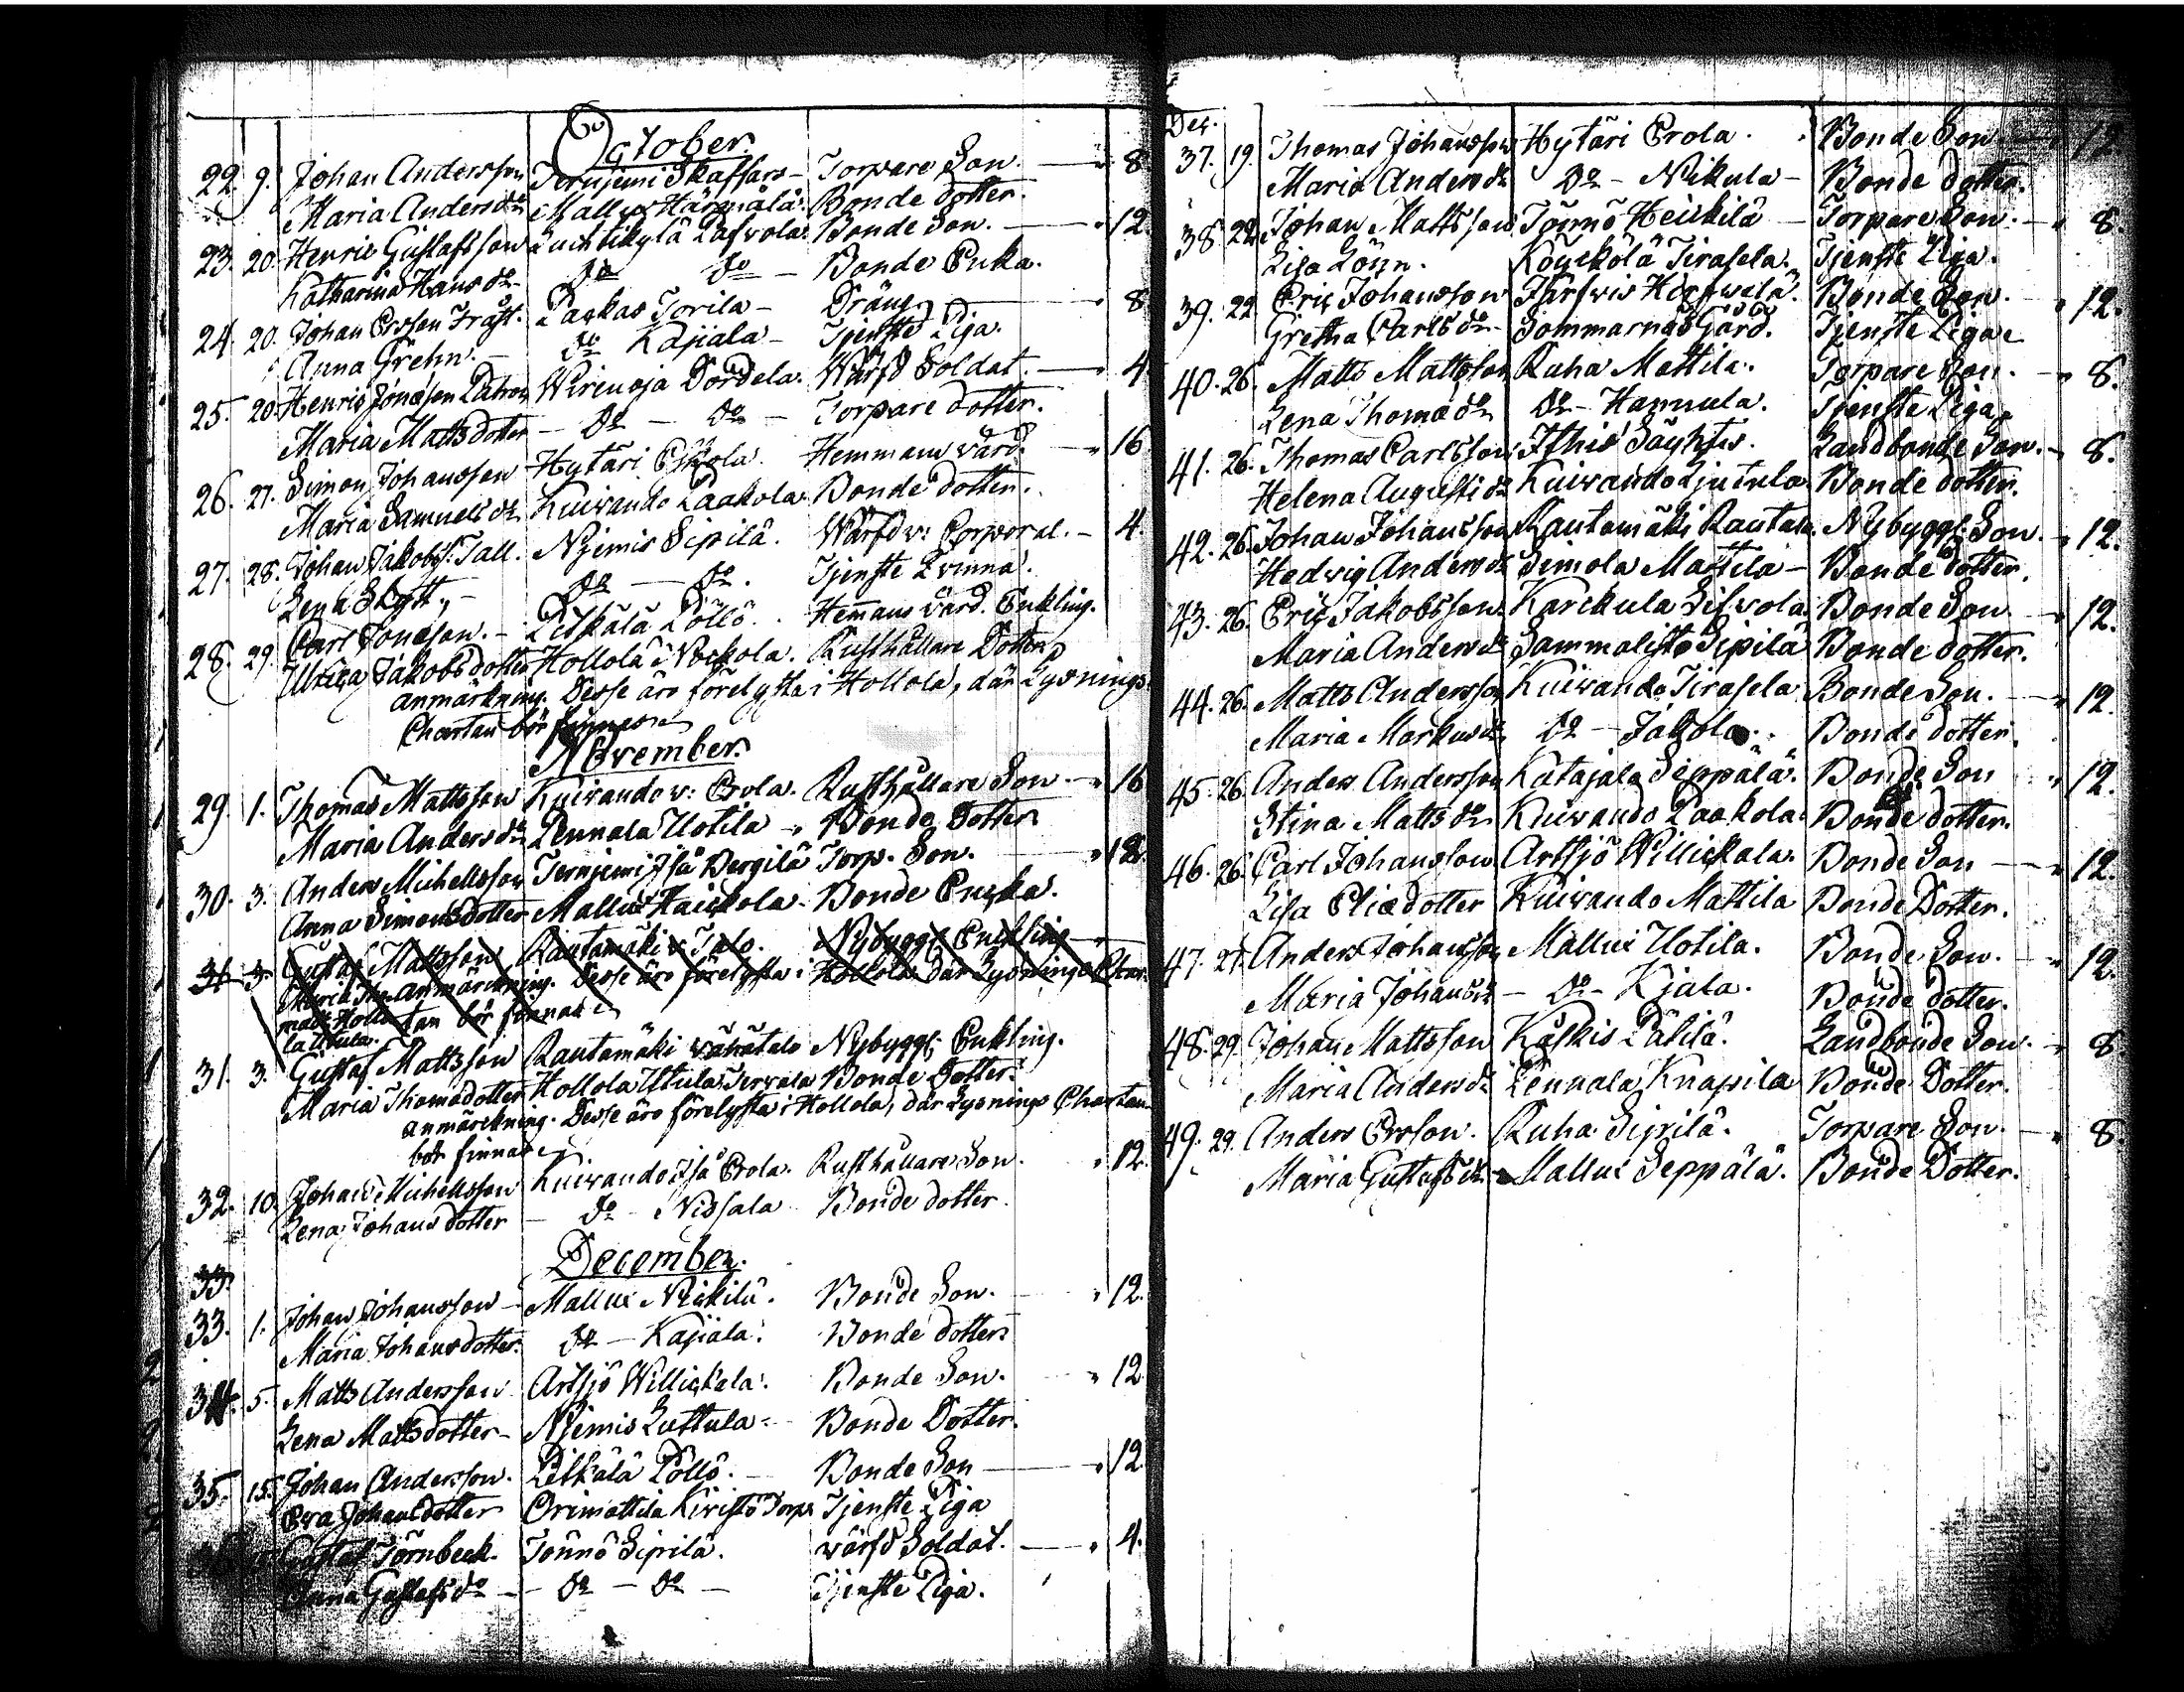 October.
22. 9. Johan Andersson Terrjemi Skaffars - Torpare Son. - " 8.
Maria Anders dr Mallus Härmälä. Bonde dotter.
23. 20. Henric Gustafsson Luchtikylä Lafvola. Bonde Son. - " 12.
Katharina Hans dr - do do - Bonde Enka.
24. 20. Johan Ersson Fräst. Paekas Torila - Dräng - " 8.
Anna Grehn. - do Kajiala - Tjenste Piga.
25. 20. Henric Jonæson Wirenoja Dordela. Wärfd Soldat. - " 4.
Maria Matts dotter - do - do - Torpare dotter.
26. 27. Simon Johansson Hytäri Eskola. Hemmans värd. - " 16.
Maria Samuels dr Kuivando Paakola Bonde dotter.
27. 28. Johan Jakobss: Tall. Njemis Sipilä. Wärfd v: Corporal. - 4.
Lena Skytt, - do - do. Tjenste Qvinna.
28. 29. Carl Jonæson. - Pitkälä Pöllö. Hemmans värd. Enkling.
Ulrica Jakobsdotter Hollola Nockola. Rusthållare Dotter,
anmärkning. Desse äro förelysta i Hollola, där Lysnings
Chartan bör finnas.
November.
29. 1. Thomas Mattsson Kuivando v: Erola. Rusthållare Son - " 16
Maria Anders dr Pennala Uotila - Bonde Dotter
30. 3. Anders Michellsson Terrjemi Iså Pergilä Torp. Son. - " 12.
Anna Simonsdotter Mallus Haickola. Bonde Encka.
31. 3. Gustaf Mattsson Rautamäki v: Talo. Nybyggs Enkling
anmärckning. Desse äro förelysta i Hollola där Lysnings Char
tan bör finnas
31. 3. Gustaf Mattsson Rautamäki Vähätalo Nybygg: Enkling.
Maria Thomædotter Hollola Utula Jervala Bonde Dotter.
anmärckning. Desse äro förelysta i Hollola, där Lysnings Chartan
bör finnas.
32. 10. Johan Michellsson Kuivando Iså Erola. Rusthållare Son. " 12.
Lena Johans dotter - do - Nissala - Bonde dotter.
December.
33.
33. 1. Johan Johansson - Mallus Nickilä. Bonde Son. - " 12.
Maria Johansdotter. do - Kajiala. Bonde dotter
34. 5. Matts Andersson Artsjö Willickala. Bonde Son. - " 12
Lena Mattsdotter - Njemis Luttula - Bonde Dotter.
35. 15. Johan Andersson. Pitkälä Pöllö. - Bonde Son - " 12.
Eva Johansdotter Orimattila Kivistö Torp. Tjenste Piga
Gustaf Törnbeck. Tönnö Sipilä. värfd Soldat. - " 4.
Anna Gustafs dr - - do - do - Tjenste Piga.
Dec.
37. 19. Thomas Johansson Hytäri Erola. Bonde Son - 12.
Maria Anders dr do - Nikula - Bonde dotter.
38. 22. Johan Mattsson Tönnö Heickilä - Torpare Son. - " 8.
Lisa Lönn. Köyckölä Tirasela. Tjenste Piga.
39. 22. Eric Johansson Järfvis Hörfvelä. Bonde Son. " 12.
Gretha Carls dr - Sommarnäs Gård. Tjenste Piga
40. 26. Matts Mattsson Ruha Mattila. Torpare Son. - " 8.
Lena Thomæ dr do - Hannula. Tjenste Piga.
41. 26. Thomas Carlsson Ithis Säyhtis. Landbonde Son. - 8.
Helena Augusti dr Kuivando Ljutula Bonde dotter.
42. 26. Johan Johansson Rautamäki Rautala. Nybygg: Son. - " 12.
Hedvig Anders dr Simola Mattila - Bonde dotter.
43. 26. Eric Jakobsson. Karickula Sifvola Bonde Son - " 12.
Maria Anders dr Sammalisto Sipilä Bonde dotter.
44. 26. Matts Andersson Kuivando Tirasela Bonde Son. - " 12.
Maria Markus dr do - Jakola. Bonde dotter.
45. 26. Anders Andersson Katajala Seppälä. Bonde Son " 12.
Stina Matts dr Kuivando Paakola Bonde dotter.
46. 26. Carl Johansson Artsjö Willickala. Bonde Son - " 12.
Lisa Eliædotter Kuivando Mattila Bonde Dotter.
47. 27. Anders Johansson Mallus Uotila. Bonde Son. - " 12.
Maria Johans dr - do - Kjala. Bonde dotter.
48. 29. Johan Mattsson Kaskis Pätilä. Landbonde Son. - " 8.
Maria Anders dr Pennala Knapila Bonde Dotter.
49. 29. Anders Ersson. Ruha Sipilä. Torpare Son. - " 8.
Maria Gustafs dr Mallus Seppälä. Bonde Dotter.